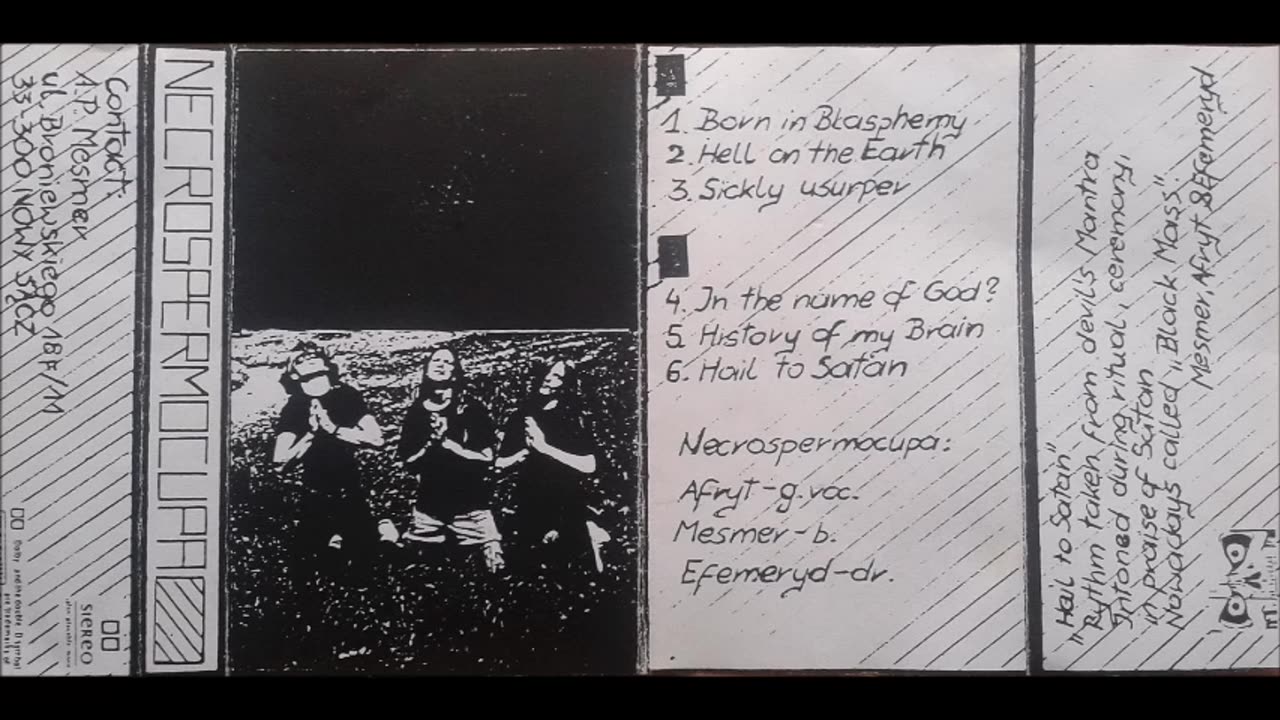 Contact:
A.P. Mesmer
ul. Broniewskiego 18F/M
33-300 NOWY SĄCZ
STEREO
NECROSPERMOCUPA
1. Born in Blasphemy
2. Hell on the Earth
3. Sickly usurper
4. In the name of God?
5. History of my Brain
6. Hail to Satan
Necrospermocupa:
Afryt-g.voc.
Mesmer-b.
Efemeryd-dr.
"Hail to Satan"
"Rythm taken from devils Mantra
Intoned during ritual, ceremony,
in praise of Satan
Nowadays called „Black Mass".
Mesmer, Afryt & Efemeryd